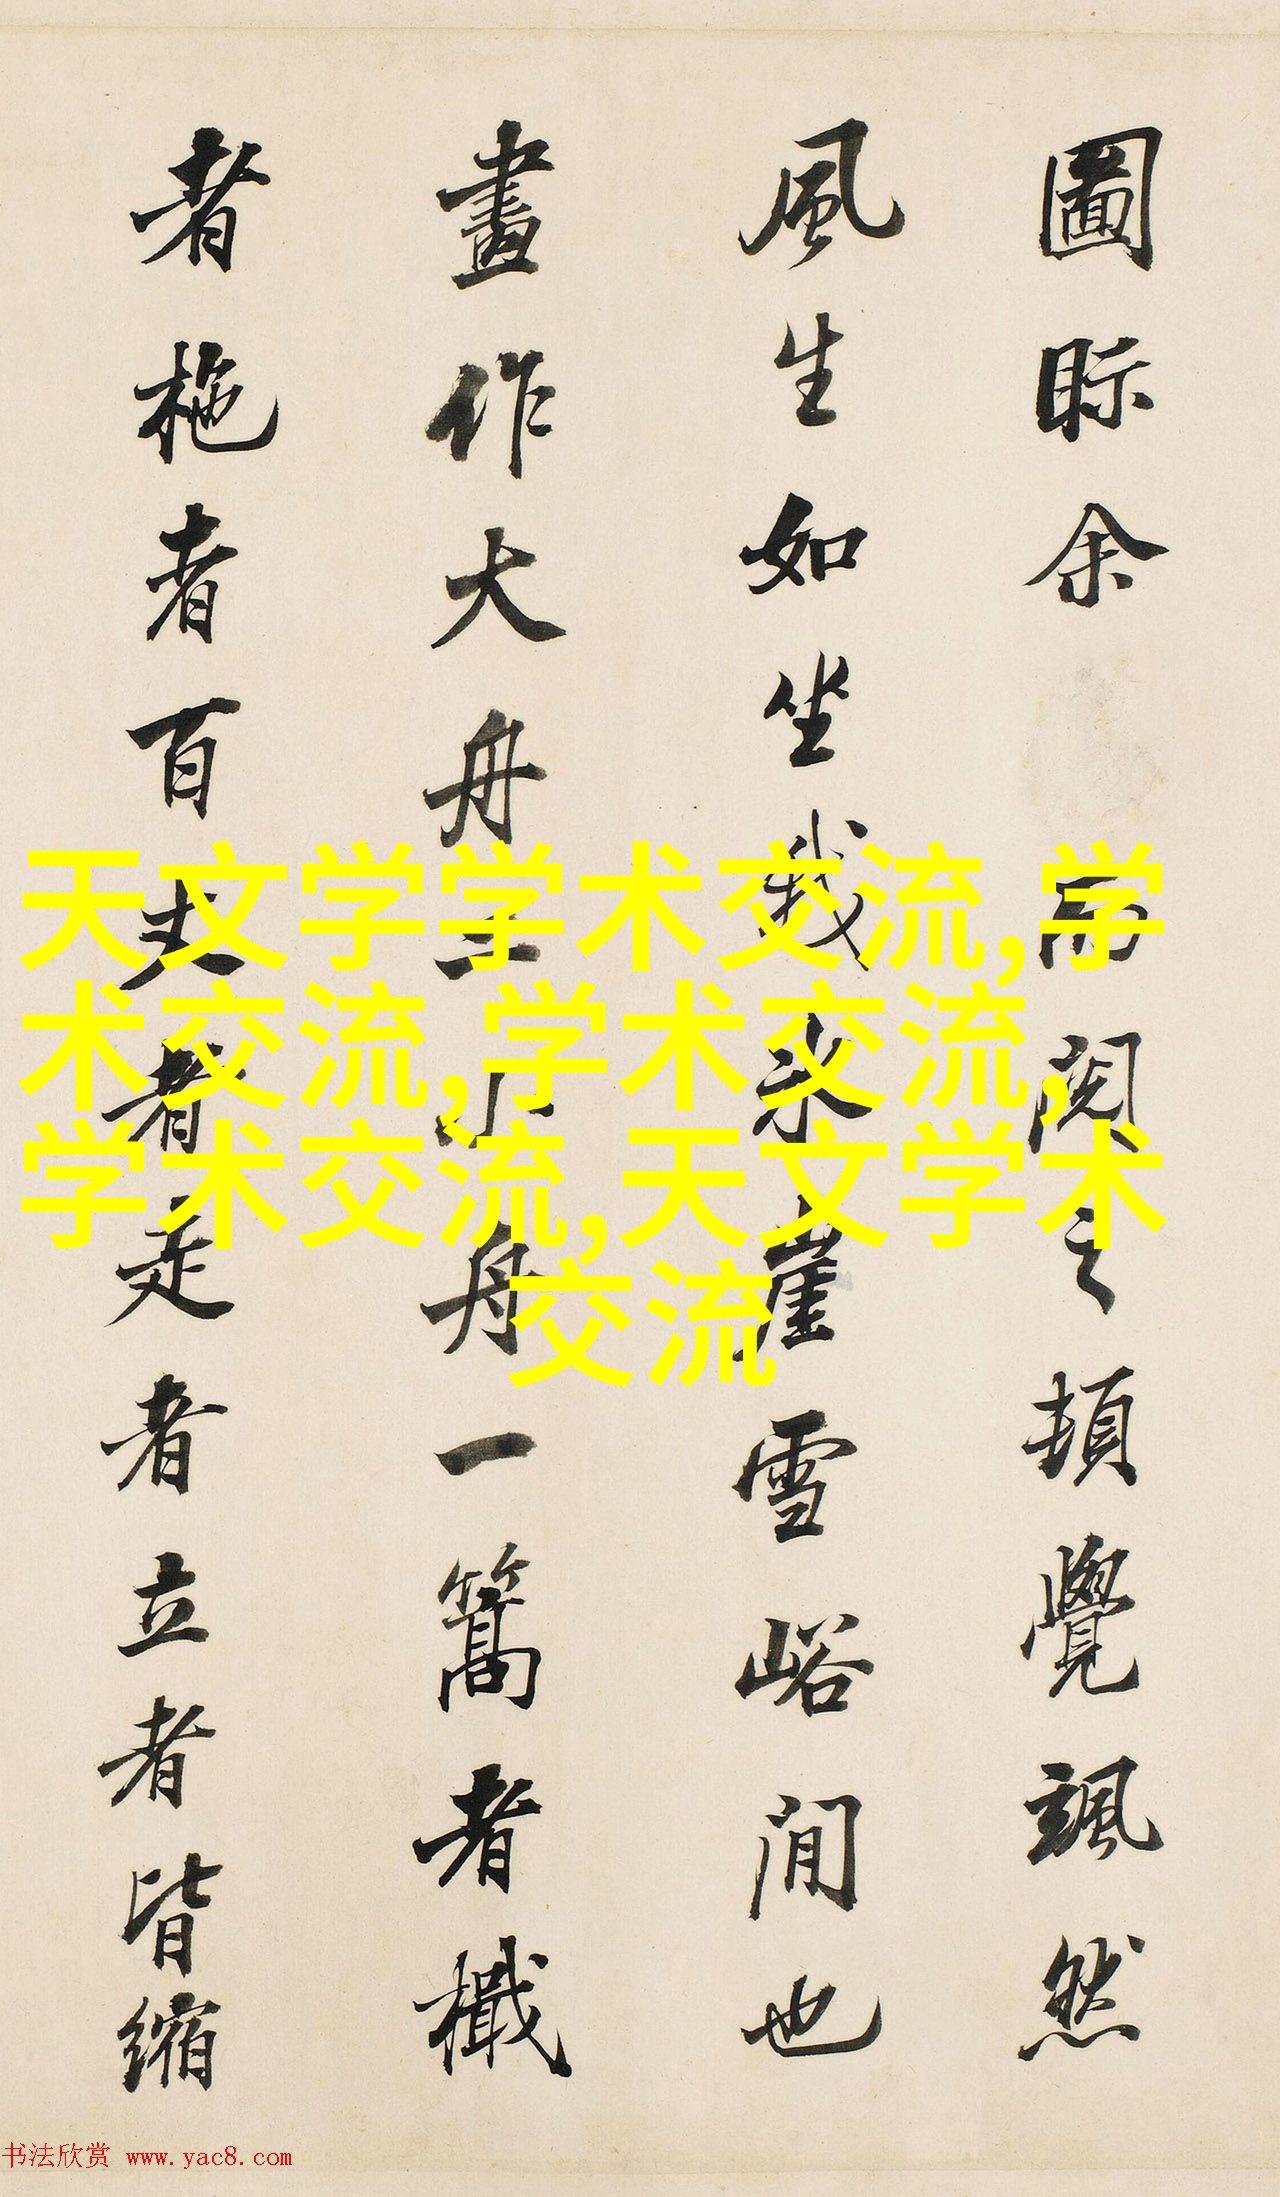 圖眎余
而閱之頓覺颯然
風生如坐我氷崖雪峪間也
畫作大舟小舟一篙者檝
者柂者百丈者走者立者皆縮
天文学学术交流,学
术交流,学术交流,
学术交流,天文学术
交流
书法欣赏 www.yac8.com